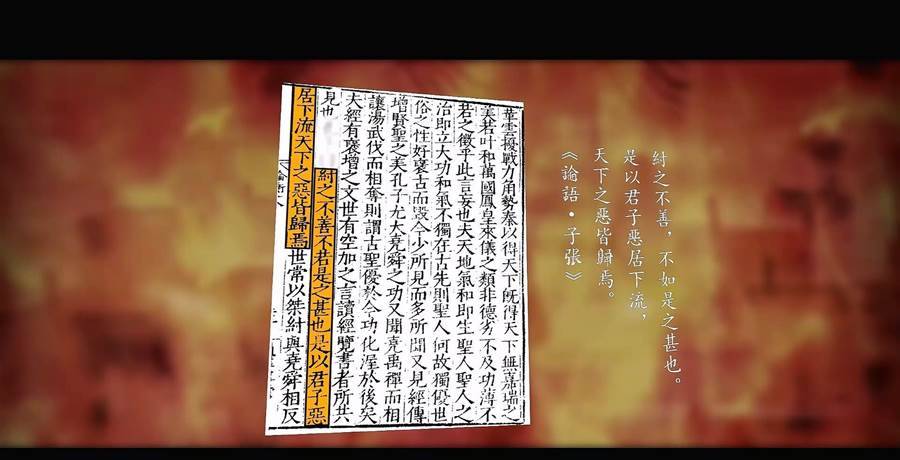 紂之不善，不如是之甚也。
是以君子惡居下流，
天下之惡皆歸焉。
《論語·子張》
華雲擾戰力角勢秦以得天下旣得天下無嘉瑞之
美若叶和萬國鳳皇來儀之類非德劣不及功薄不
若之徵乎此言妄也夫天地氣和即生聖人聖人之
治即立大功和氣不獨在古先則聖人何故獨優也
俗之性好襃古而毀今少所見而多所聞又見經傳
增賢聖之美孔子尤大堯舜之功又聞堯禹禪而相
讓湯武伐而相奪則謂古聖優於今功化渥於後矣
夫經有襃增之文世有空加之言讀經覽書者所共
見也 紂之不善不若是之甚也是以君子惡
居下流天下之惡皆歸焉世常以桀紂與堯舜相反